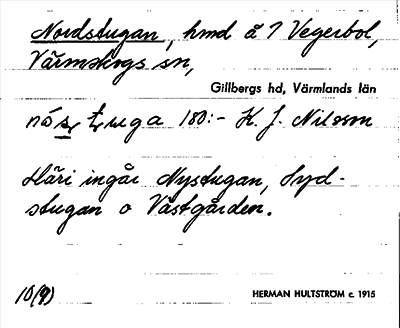 Nordstugan, hmd å 7 Vegerbol,
Värmskogs sn,
Gillbergs hd, Värmlands län
nós̠ tuga 180:- K. J. Nilsson
Häri ingår Nystugan, Syd-
stugan o Västgården.
10(9)
HERMAN HULTSTRÖM c. 1915